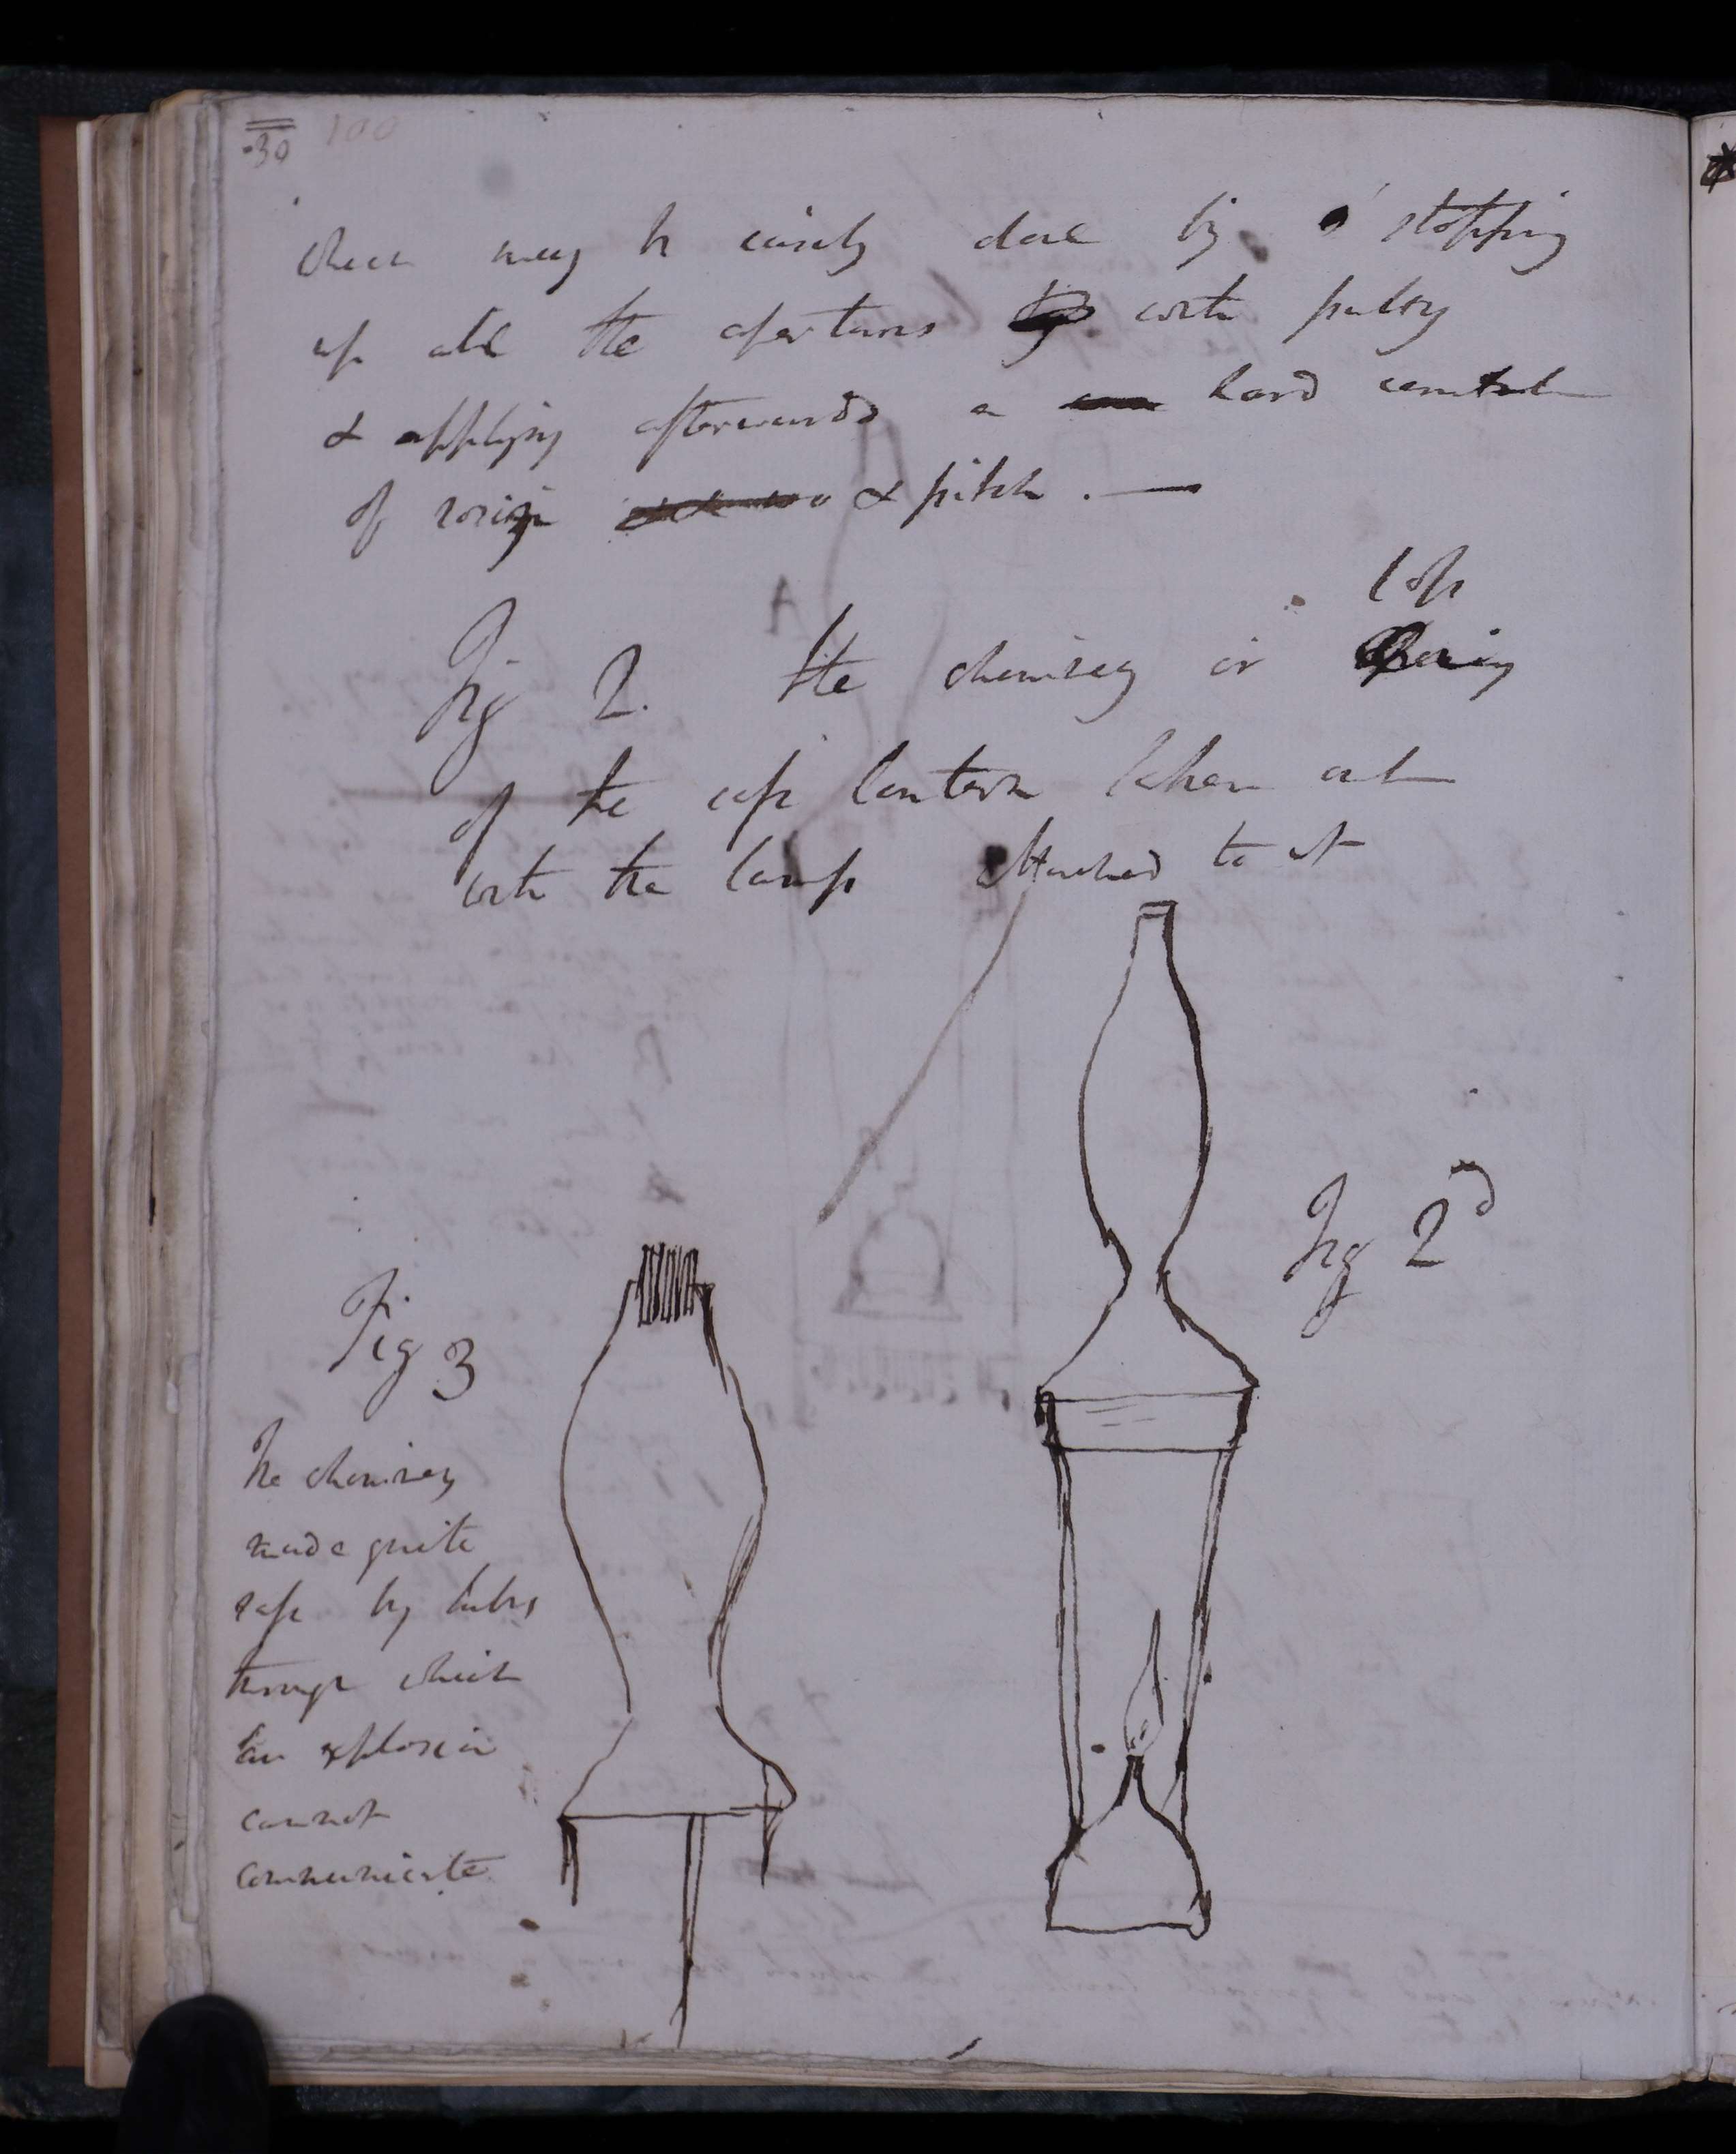 30 100
which may be easily done by stopping
up all the apertures with putty
& applying afterwards a hard cement
of rosin & pitch. —
top
Fig 2. The chimney or opening
of the safe lantern taken out
with the lamp attached to it
Fig 2d
Fig 3
The chimney
made quite
safe by tubes
through which
an explosion
cannot
communicate